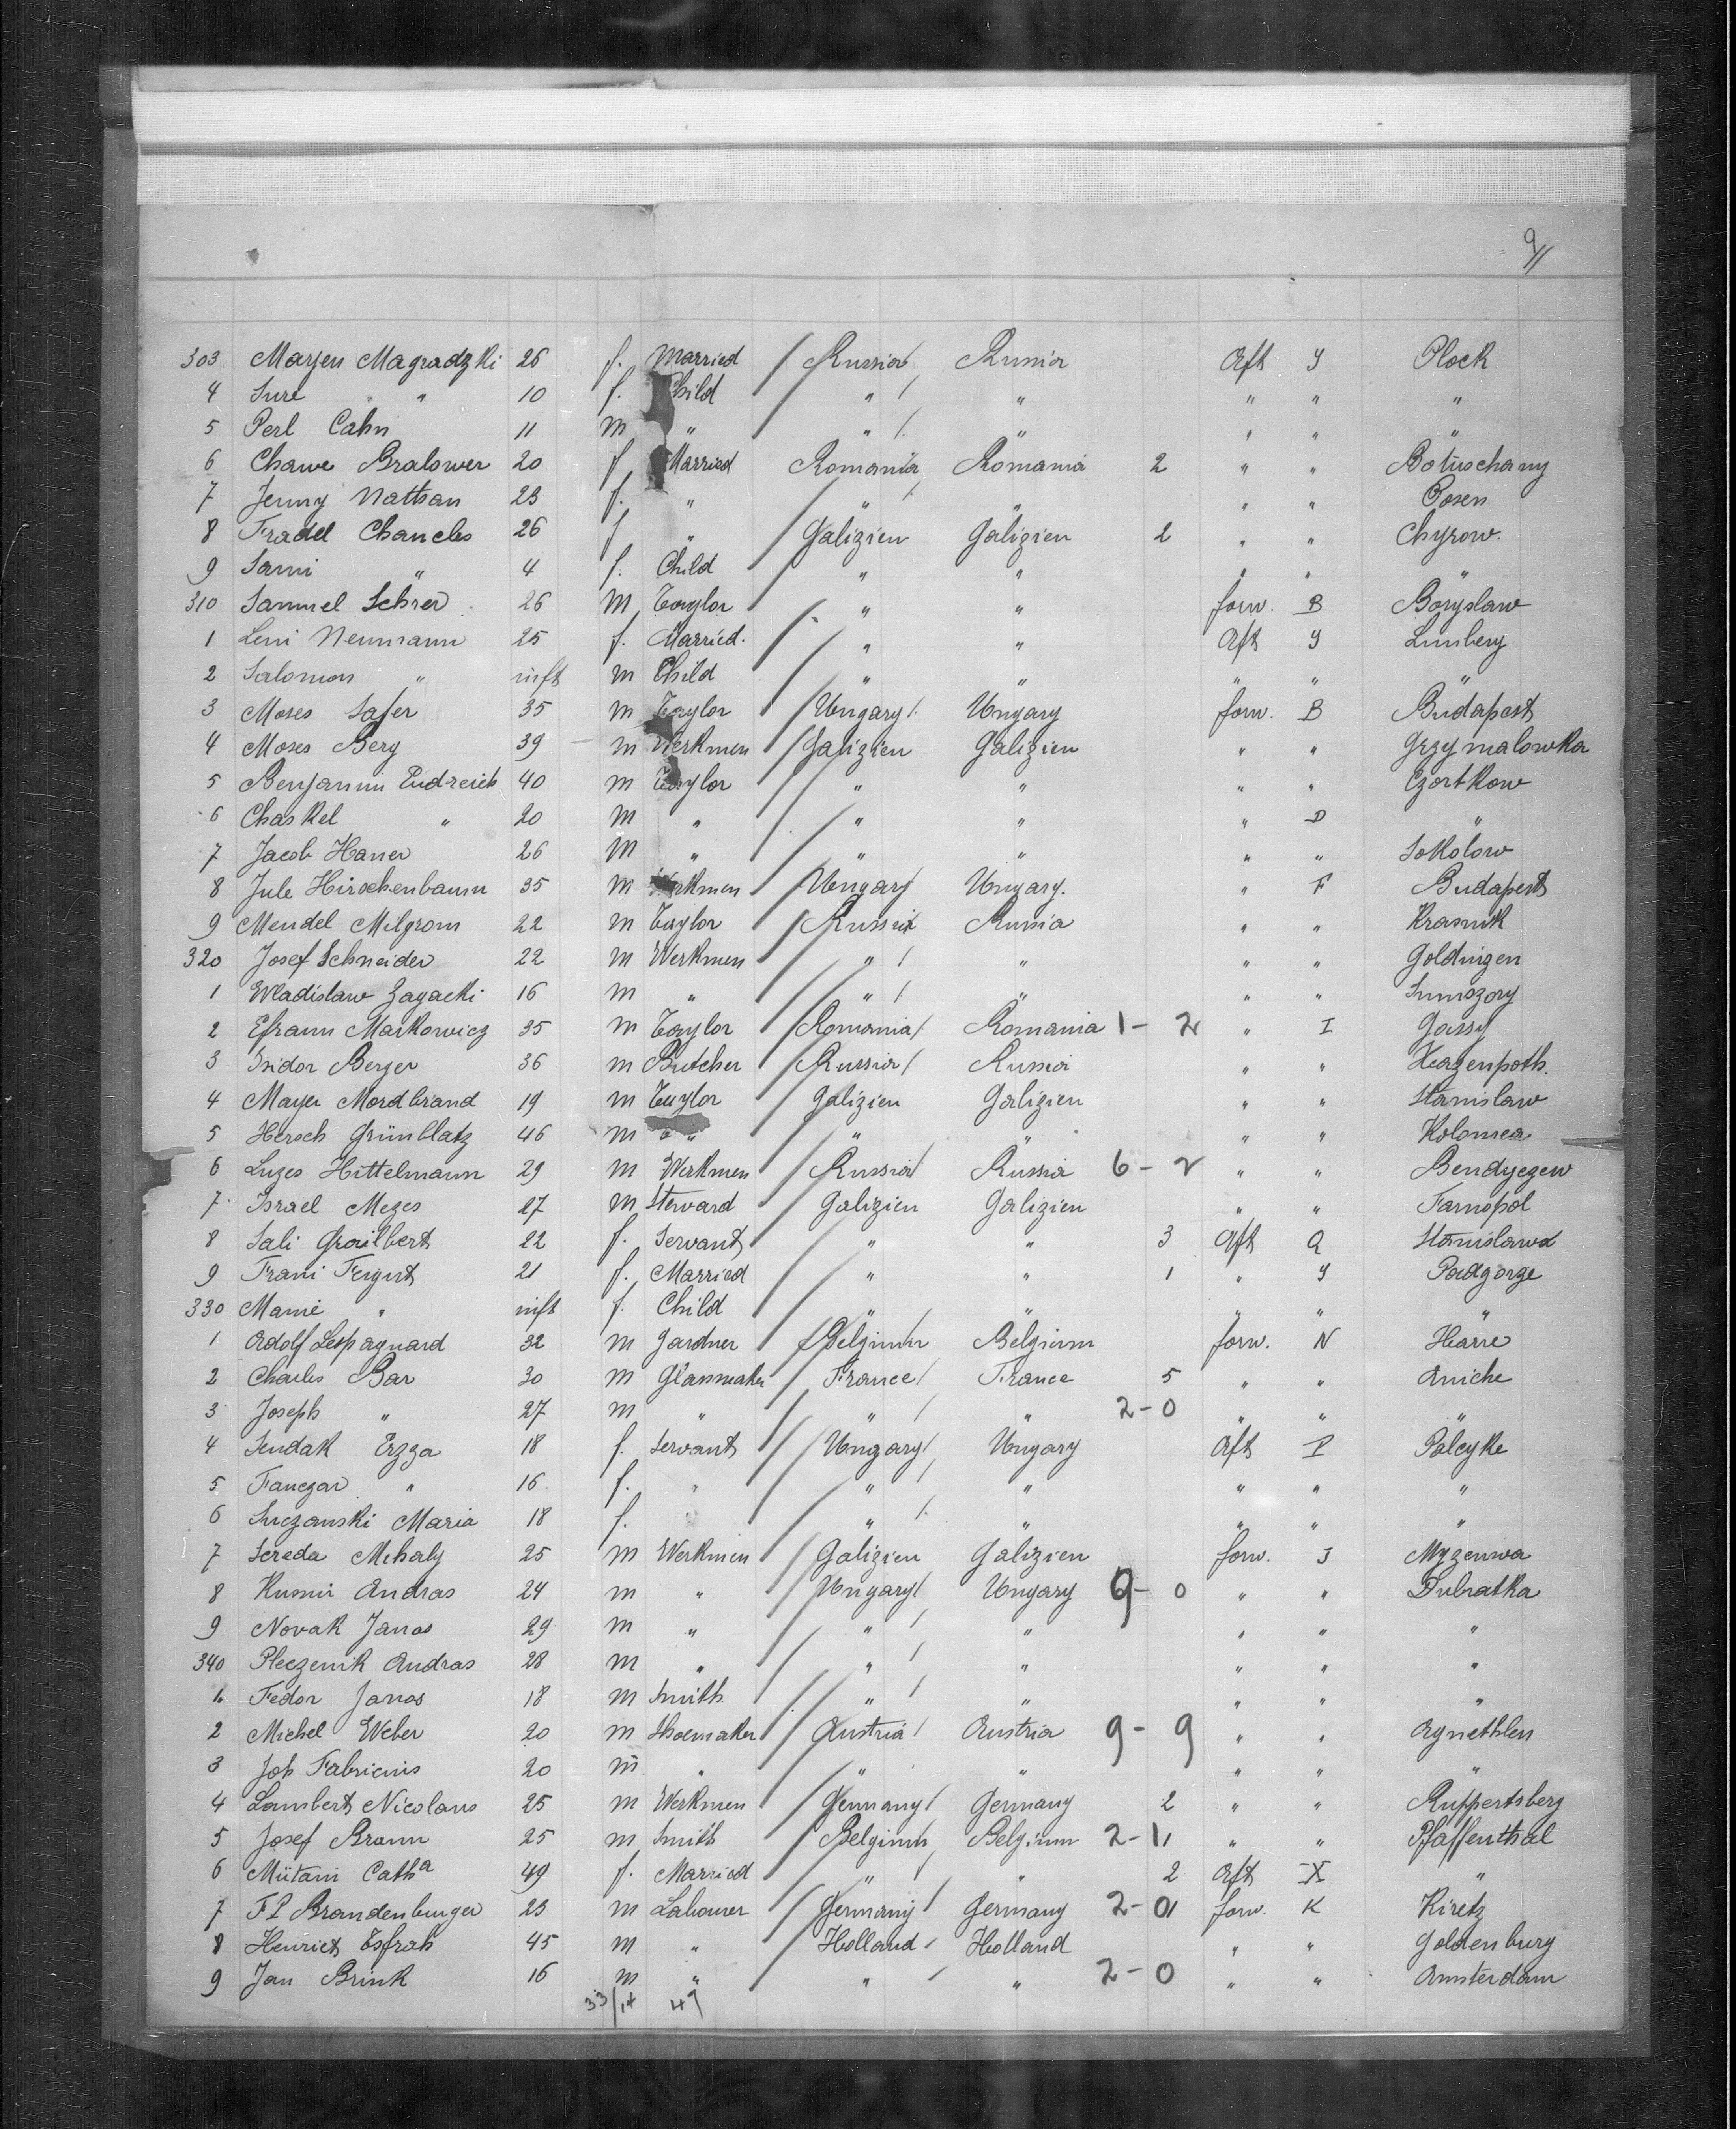 9/11
303 Maryen Magradzki 26 f. Married Russia Russia Aft Y Plock
4 Sure " " 10 f. Child " " " " "
5 Perl Cahn 11 m " " " " " "
6 Chawe Bralower 20 f Married Romania Romania 2 " " Botuschany
7 Jenny Nathan 23 f. " " " " " Posen
8 Fradel Chaneles 26 f " Galizien Galizien 2 " " Chyrow.
9 Sami " 4 f. Child " " " " "
310 Samuel Schrer 26 m Taylor " " forw. B Boryslaw
1 Leni Neumann 25 f. Married. " " Aft Y Lemberg
2 Salomon " inft m Child " " " " "
3 Moses Safer 35 m Taylor Ungary Ungary forw. B Budapest
4 Moses Berg 39 m Werkmen Galizien Galizien " " Grzymalowka
5 Benjamin Eudreich 40 m Taylor " " " " Czortkow
6 Chaskel " 20 m " " " " D "
7 Jacob Haner 26 m " " " " " Sokolow
8 Jule Hirschenbaum 35 m Werkmen Ungary Ungary. " F Budapest
9 Mendel Milgrom 22 m Taylor Russia Russia " " Krasnik
320 Josef Schneider 22 m Werkmen " " " " Goldingen
1 Wladislaw Zagacki 16 m " " " " "
2 Efraim Markowicz 35 m Taylor Romania Romania 1 - 2 " I Jassy
3 Isidor Berger 36 m Butcher Russia Russia " " Hazenpoth.
4 Mayer Mordbrand 19 m Taylor Galizien Galizien " " Stanislaw
5 Hersch Grünblatz 46 m " " " " " Kolomea
6 Luzes Hittelmann 29 m Werkmen Russia Russia 6 - 2 " " Bendyczew
7 Israel Mezes 27 m Steward Galizien Galizien " " Tarnopol
8 Sali Grailbert 22 f. Servant " " 3 Aft Q Stanislaws
9 Frani Feigut 21 f. Married " " 1 " Y Podgorze
330 Manie " inft f. Child " " " " "
1 Adolf Lespagnard 32 m Gardner Belgium Belgium forw. N Harre
2 Charles Bar 30 m Glasmaker France France 5 " " Aniche
3 Joseph " 27 m " " " 2 - 0 " " "
4 Sendak Erzga 18 f. Servant Ungary Ungary Aft P Palcyke
5 Fanczar " 16 f. " " " " " "
6 Suczanski Maria 18 f. " " " " "
7 Sereda Mihaly 25 m Werkmen Galizien Galizien forw. J Myzenwa
8 Kusnir Andras 24 m " Ungary Ungary 9 - 0 " " Dubratka
9 Novak Janos 29 m " " " " " "
340 Pleczenik Andras 28 m " " " " " "
1 Fedor Janos 18 m Smith " " " " "
2 Michel Weber 20 m Shoemaker Austria Austria 9 - 9 " " Agnethlen
3 Joh Fabricius 20 m " " " " " "
4 Lambert Nicolaus 25 m Werkmen Germany Germany 2 " " Ruppertsberg
5 Josef Braun 25 m Smith Belgium Belgium 2 - 1 " " Pfaffenthal
6 Mütani Catha 49 f. Married " " 2 Aft X "
7 F L Brandenburger 23 m Labourer Germany Germany 2 - 0 forw. K Kiretz
8 Henriet Esfrah 45 m " Holland Holland " " Goldenburg
9 Jan Brink 16 m " " " 2 - 0 " " Amsterdam
33/14 49